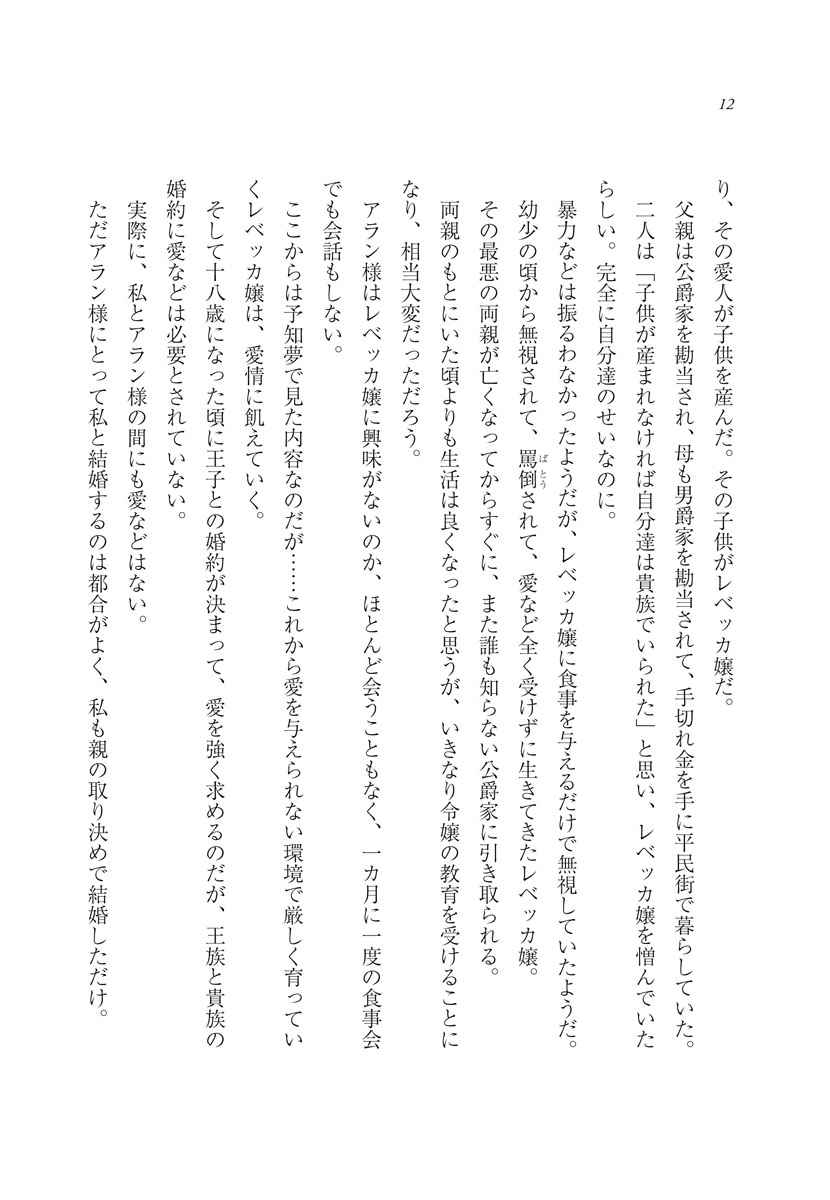 12
り、その愛人が子供を産んだ。その子供がレベッカ嬢だ。
父親は公爵家を勘当され、母も男爵家を勘当されて、手切れ金を手に平民街で暮らしていた。
二人は「子供が産まれなければ自分達は貴族でいられた」と思い、レベッカ嬢を憎んでいた
らしい。完全に自分達のせいなのに。
暴力などは振るわなかったようだが、レベッカ嬢に食事を与えるだけで無視していたようだ。
幼少の頃から無視されて、罵倒されて、愛など全く受けずに生きてきたレベッカ嬢。
ばとう
その最悪の両親が亡くなってからすぐに、また誰も知らない公爵家に引き取られる。
両親のもとにいた頃よりも生活は良くなったと思うが、いきなり令嬢の教育を受けることに
なり、相当大変だっただろう。
アラン様はレベッカ嬢に興味がないのか、ほとんど会うこともなく、一カ月に一度の食事会
でも会話もしない。
ここからは予知夢で見た内容なのだが……これから愛を与えられない環境で厳しく育ってい
くレベッカ嬢は、愛情に飢えていく。
そして十八歳になった頃に王子との婚約が決まって、愛を強く求めるのだが、王族と貴族の
婚約に愛などは必要とされていない。
実際に、私とアラン様の間にも愛などはない。
ただアラン様にとって私と結婚するのは都合がよく、私も親の取り決めで結婚しただけ。